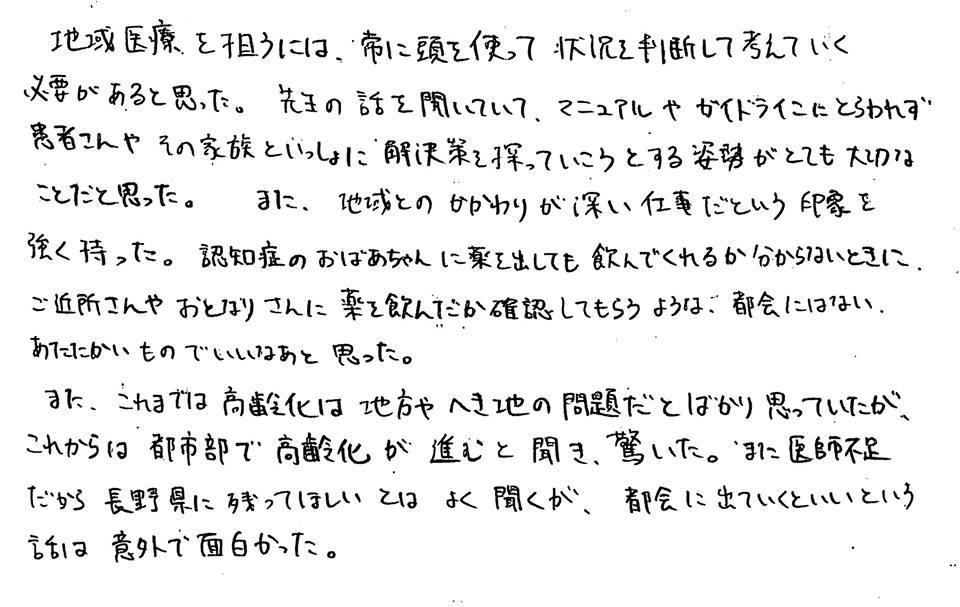 地域医療を担うには、常に頭を使って状況を判断して考えていく
必要があると思った。先生の話を聞いていて、マニュアルやガイドラインにとらわれず
患者さんやその家族といっしょに解決策を探っていこうとする姿勢がとても大切な
ことだと思った。また、地域とのかかわりが深い仕事だという印象を
強く持った。認知症のおばあちゃんに薬を出しても飲んでくれるか分からないときに、
ご近所さんやおとなりさんに薬を飲んだか確認してもらうような、都会にはない、
あたたかいものでいいなあと思った。
また、これまでは高齢化は地方やへき地の問題だとばかり思っていたが、
これからは都市部で高齢化が進むと聞き、驚いた。また医師不足
だから長野県に残ってほしいとはよく聞くが、都会に出ていくといいという
話は意外で面白かった。